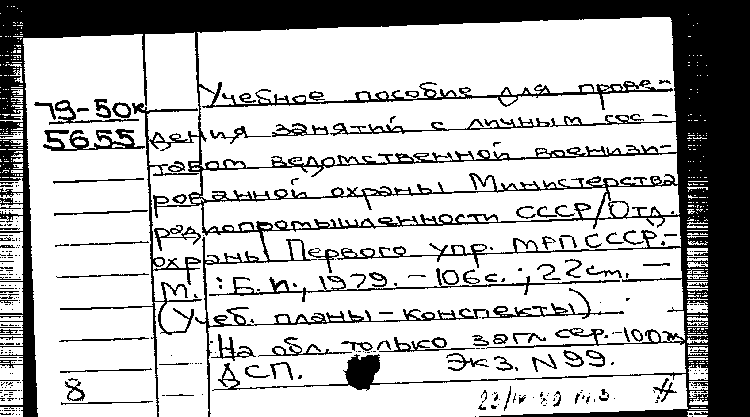 Учебное пособие для прове-
79-50к
5655
дения занятий с личным сос-
тавом ведомственной военизи-
рованной охраны Министерства
радиопромышленности СССР/Отд.
охраны Первого упр. МРП СССР.-
М. : Б. и., 1979. - 106 с. ; 22 см. —
(Учеб. планы-конспекты).
На обл. только загл. сер. - 100 экз.
ДСП. Экз. N 99.
8